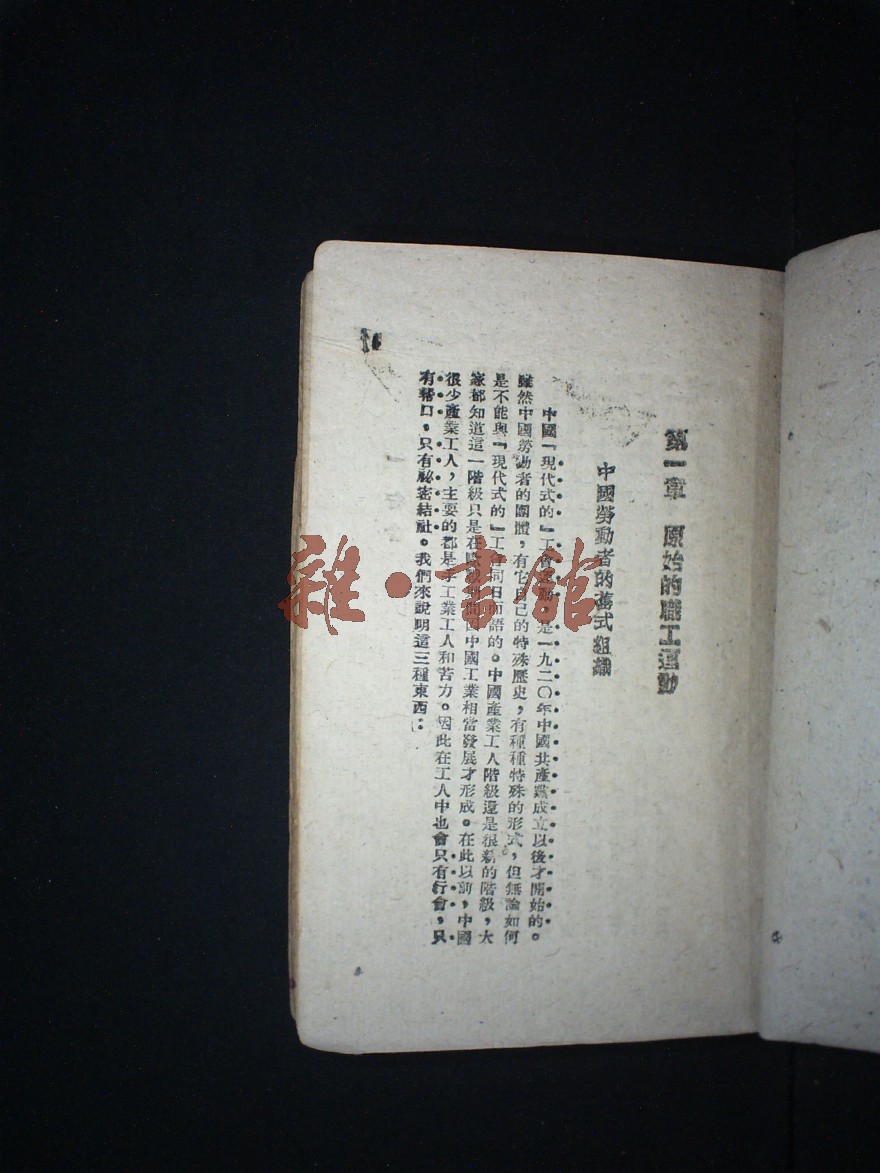 第一章 原始的職工運動
中國勞動者的舊式組織
中國『現代式的』工會運動是一九二〇年中國共產黨成立以後才開始的。
雖然中國勞動者的團體，有它自己的特殊歷史，有種種特殊的形式，但無論如何
是不能與『現代式的』工會同日而語的。中國產業工人階級還是很新的階級，大
家都知道這一階級只是在歐戰期間因中國工業相當發展才形成。在此以前，中國
很少產業工人，主要的都是手工業工人和苦力。因此在工人中也會只有行會，只
有幫口，只有祕密結社。我們來說明這三種東西：
雜·書館